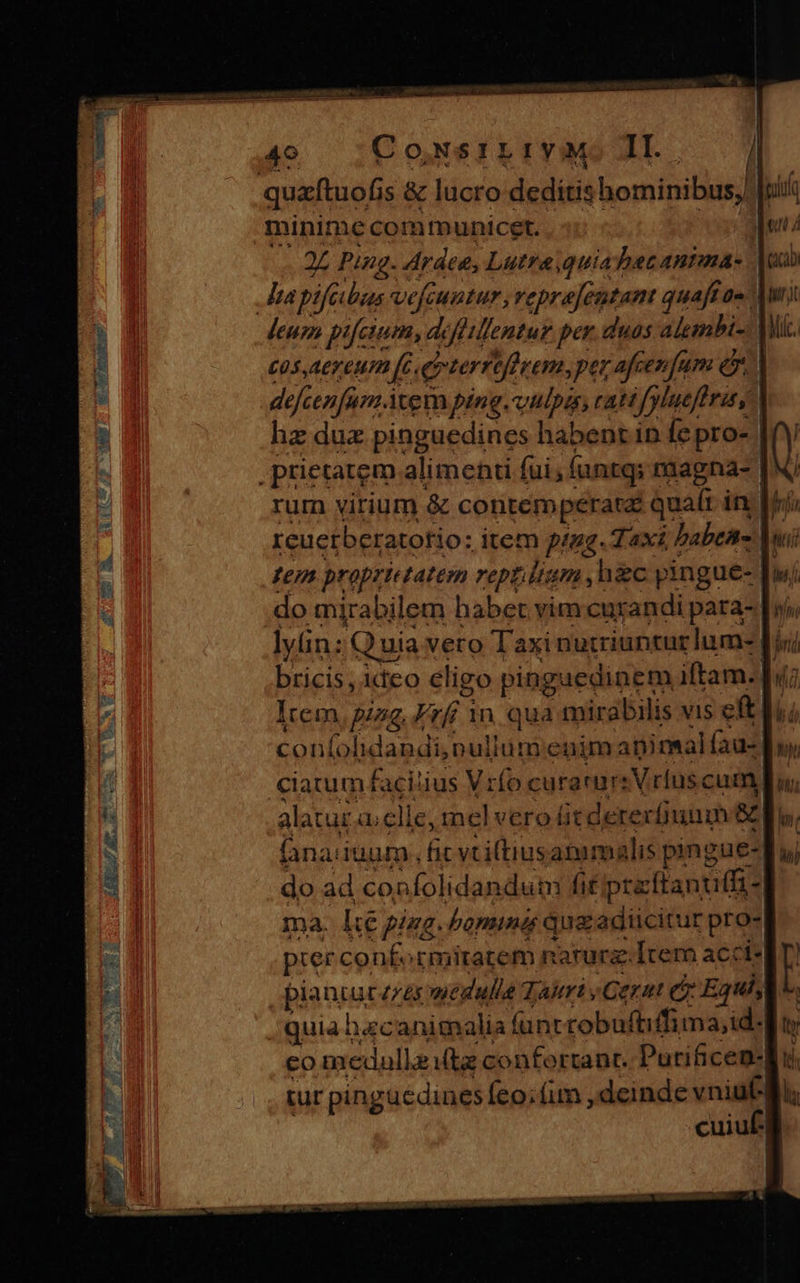 40 CONSILIVM II.
quæſtuoſis & lucro deditis hominibus,
minime communicet.
♃ Ping. Ardeæ, Lutræ, quia hæc anima-
lia piſcibus veſcuntur, repræſentant quaſi o-
leum piſcium, deſtillentur per duos alembi-
cos, aereum ſc. & terreſtrem, per aſcenſum &
deſcenſum. item ping. vulpis, cati ſylueſtris,
hæ duæ pinguedines habent in ſe pro-
prietatem alimenti ſui, ſuntq; magna-
rum virium & contemperatæ quaſi in
reuerberatorio: item ping. Taxi, haben-
tem proprietatem reptilium, hæc pingue-
do mirabilem habet vim curandi para-
lyſin: Quia vero Taxi nutriuntur lum-
bricis, ideo eligo pinguedinem iſtam.
Item, ping. Vrſi in qua mirabilis vis eſt
conſolidandi, nullum enim animal ſau-
ciatum facilius Vrſo curatur: Vrſus cum
alatura elle, mel vero ſit deterſiuum &
ſanatiuum, fit vt iſtius animalis pingue-
do ad conſolidandum ſit præſtantiſſi-
ma. Itē ping. hominis quæ adiicitur pro-
pter conformitatem naturæ. Item acci-
piantur tres medullæ Tauri, Cerui & Equi,
quia hæc animalia ſunt robuſtiſſima, id-
eo medullæ iſtæ confortant. Purificen-
tur pinguedines ſeorſim, deinde vniuſ-
cuiuſ-